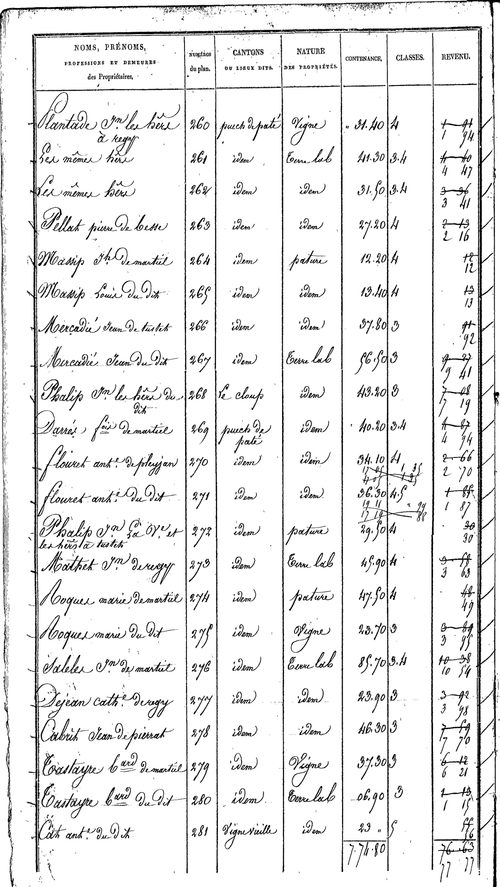 NOMS, PRÉNOMS,
PROFESSIONS ET DEMEURES
des Propriétaires.
NUMÉROS
du plan.
CANTONS
OU LIEUX DITS.
NATURE
DES PROPRIÉTÉS.
CONTENANCE.
CLASSES.
REVENU.
Plantade Jn. les hérs 260 puech de paté Vigne " 31.40 4 1 94
à regy
Les mêmes hérs 261 idem Terre lab 41.30 3.4 4 47
Les mêmes hérs 262 idem idem 31.50 3.4 3 41
Pellat pierre de besse 263 idem idem 27.20 4 2 16
Massip Jh. de martiel 264 idem pature 12.20 4 12
Massip Louis du dit 265 idem idem 13.40 4 13
Mercadié Jean de testet 266 idem idem 37.80 3 92
Mercadié Jean du dit 267 idem Terre lab 56.50 3 9 41
Phalip Jn. les hérs du 268 Le cloup idem 43.20 3 7 19
dit
Darrés fois de martiel 269 puech de idem 40.20 3.4 4 94
paté
flouret ante. de pleyjan 270 idem idem 34.10 4 2 70
flouret ante. du dit 271 idem idem 36.30 4.5 1 87
Phalip Jn. La Ve. et 272 idem pature 29.50 4 30
les hérs à testet
Mathet Jn. de regy 273 idem Terre lab 45.90 4 3 63
Roques marie de martiel 274 idem pature 47.50 4 49
Roques marie du dit 275 idem Vigne 23.70 3 3 95
Saleles Jn. de martiel 276 idem Terre lab 85.70 3.4 10 54
Dejean cathe. de regy 277 idem idem 23.90 3 3 98
Cabrit Jean de pierrat 278 idem idem 46.30 3 7 70
Tastayre bard de martiel 279 idem Vigne 37.30 3 6 21
Tastayre bard du dit 280 idem Terre lab 06.90 3 1 15
Cat ant. du dit 281 Vigne vieille idem 23 " 5
7.74.80 76.63
77 77